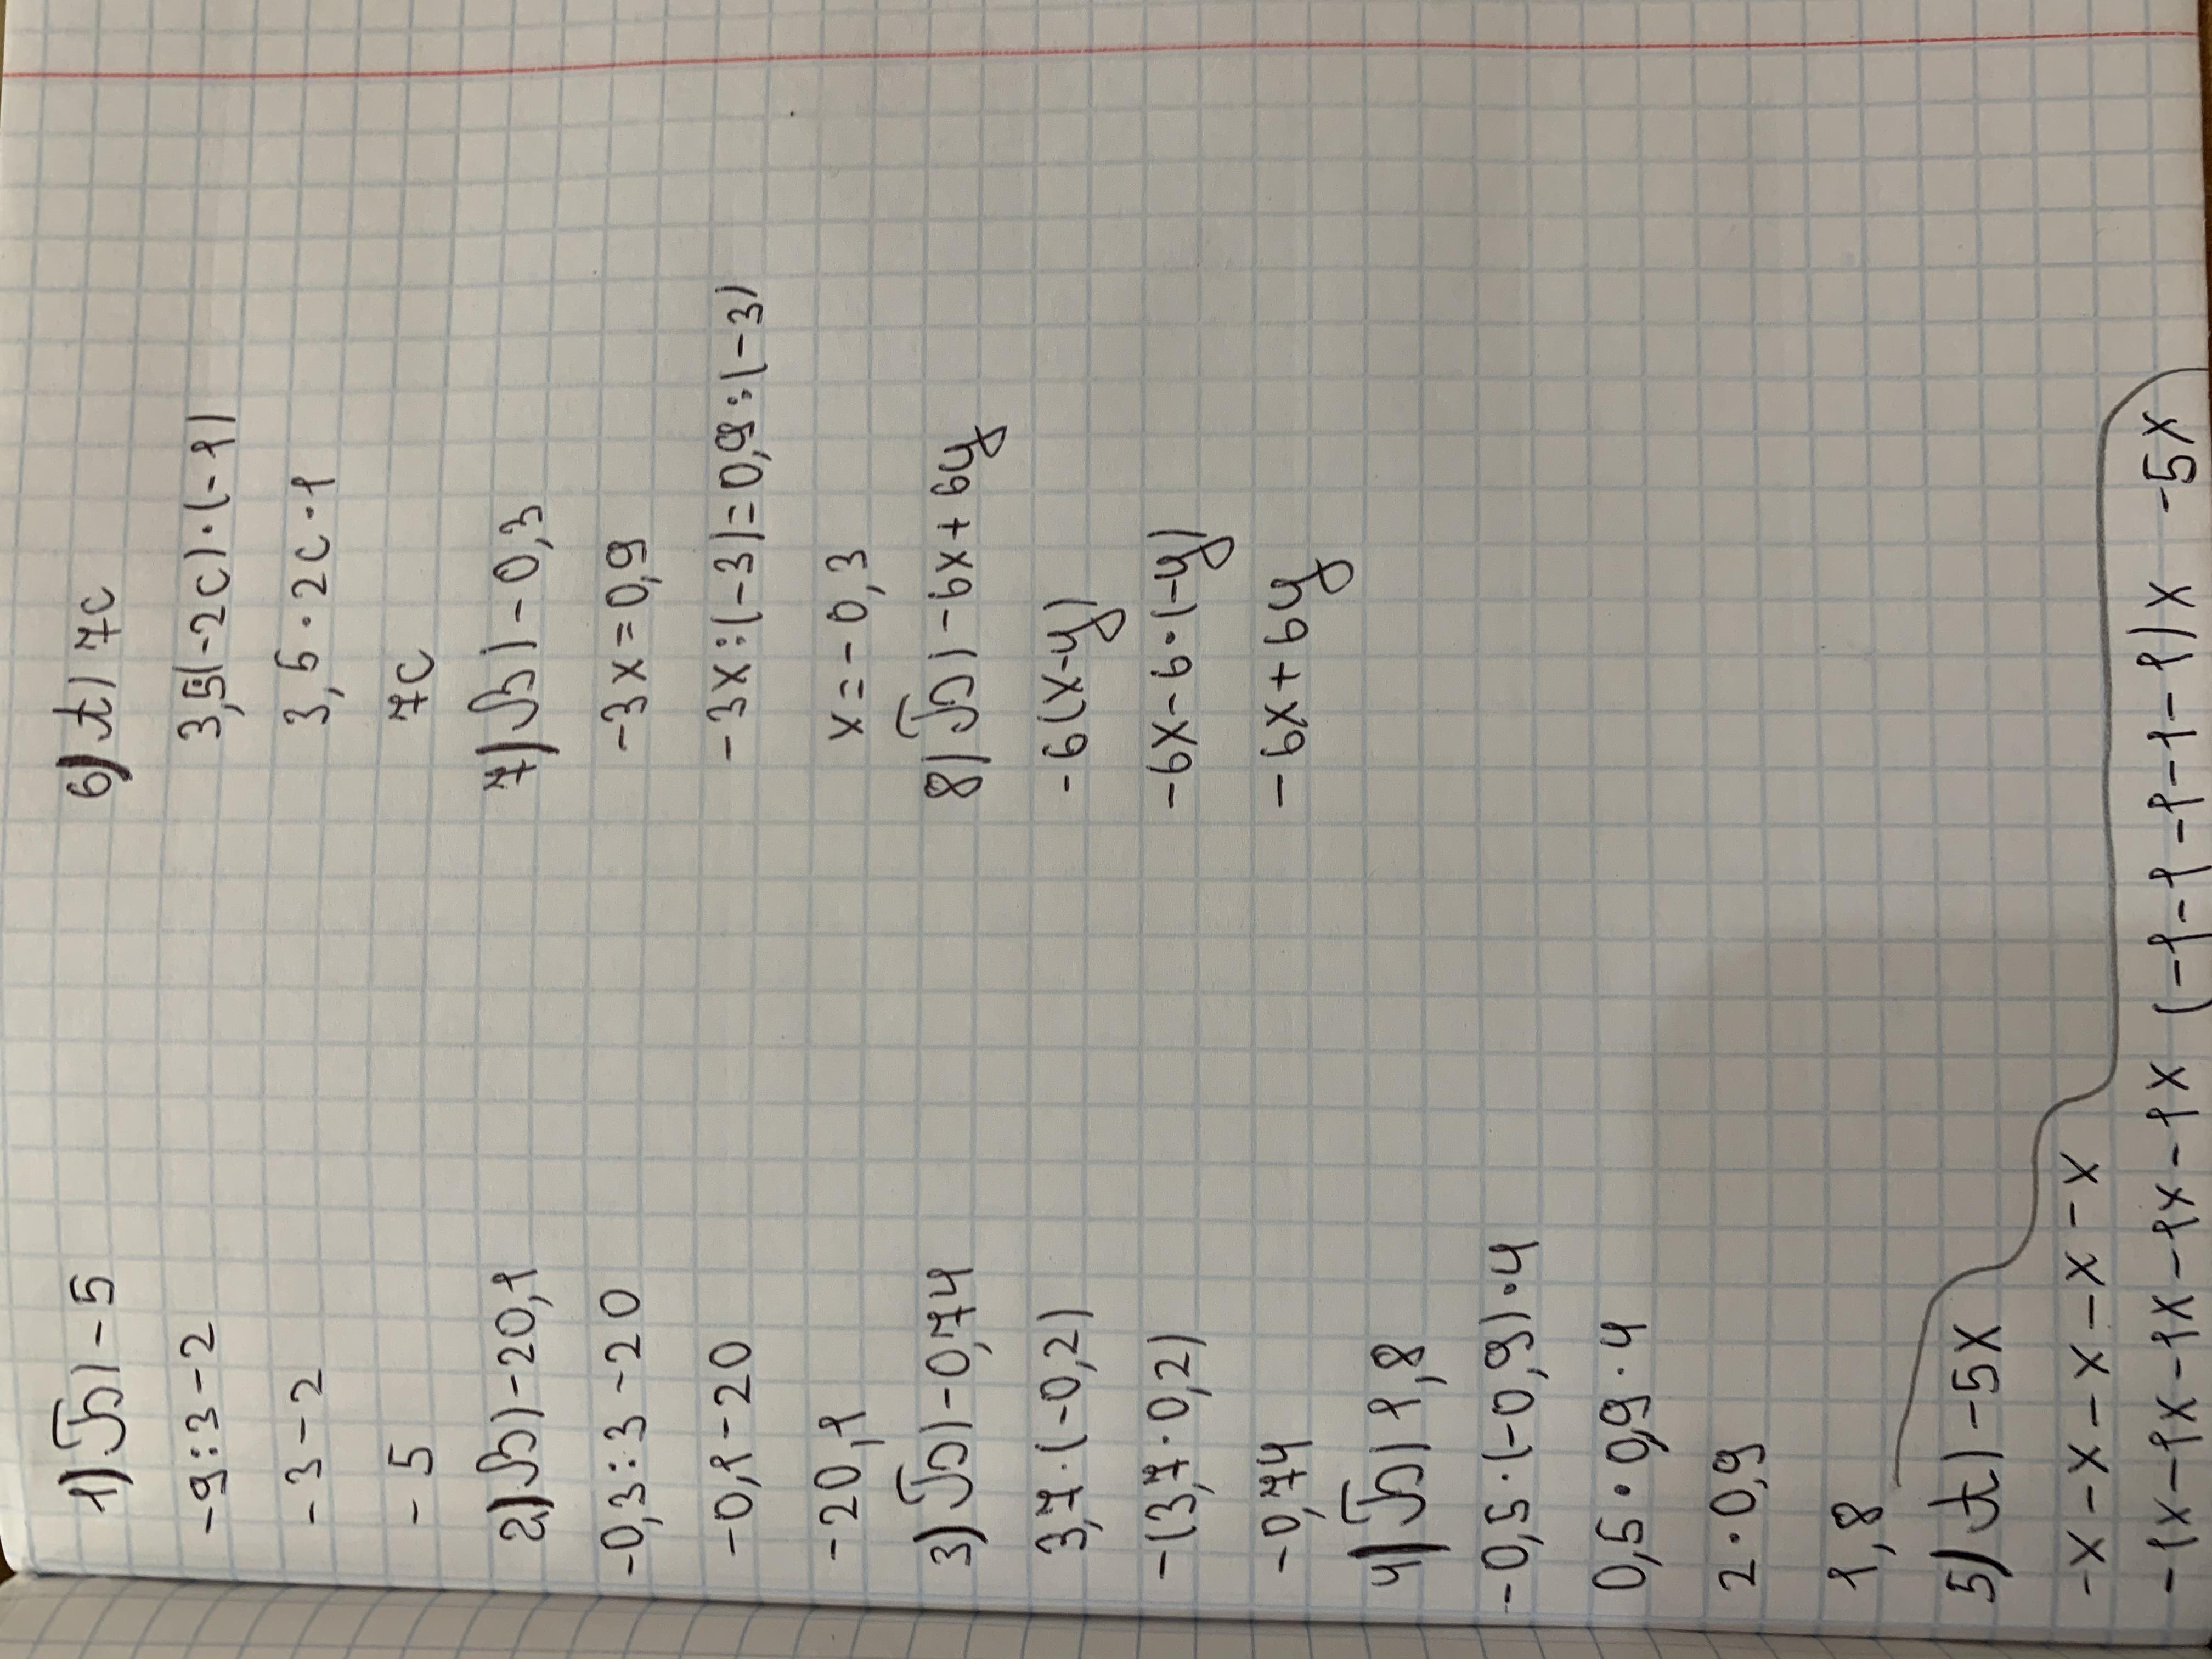 1) Б) -5
-9:3-2
-3-2
-5
2) В) -20,1
-0,3:3-20
-0,1-20
-20,1
3) Б) -0,74
3,7·(-0,2)
-(3,7·0,2)
-0,74
4) Б) 1,8
-0,5·(-0,9)·4
0,5·0,9·4
2·0,9
1,8
5) А) -5x
-x-x-x-x-x
-1x-1x-1x-1x-1x (-1-1-1-1-1)x -5x
6) А) 7c
3,5(-2c)·(-1)
3,5·2c·1
7c
7) В) -0,3
-3x=0,9
-3x:(-3)=0,9:(-3)
x=-0,3
8) Б) -6x+6y
-6(x-y)
-6x-6·(-y)
-6x+6y